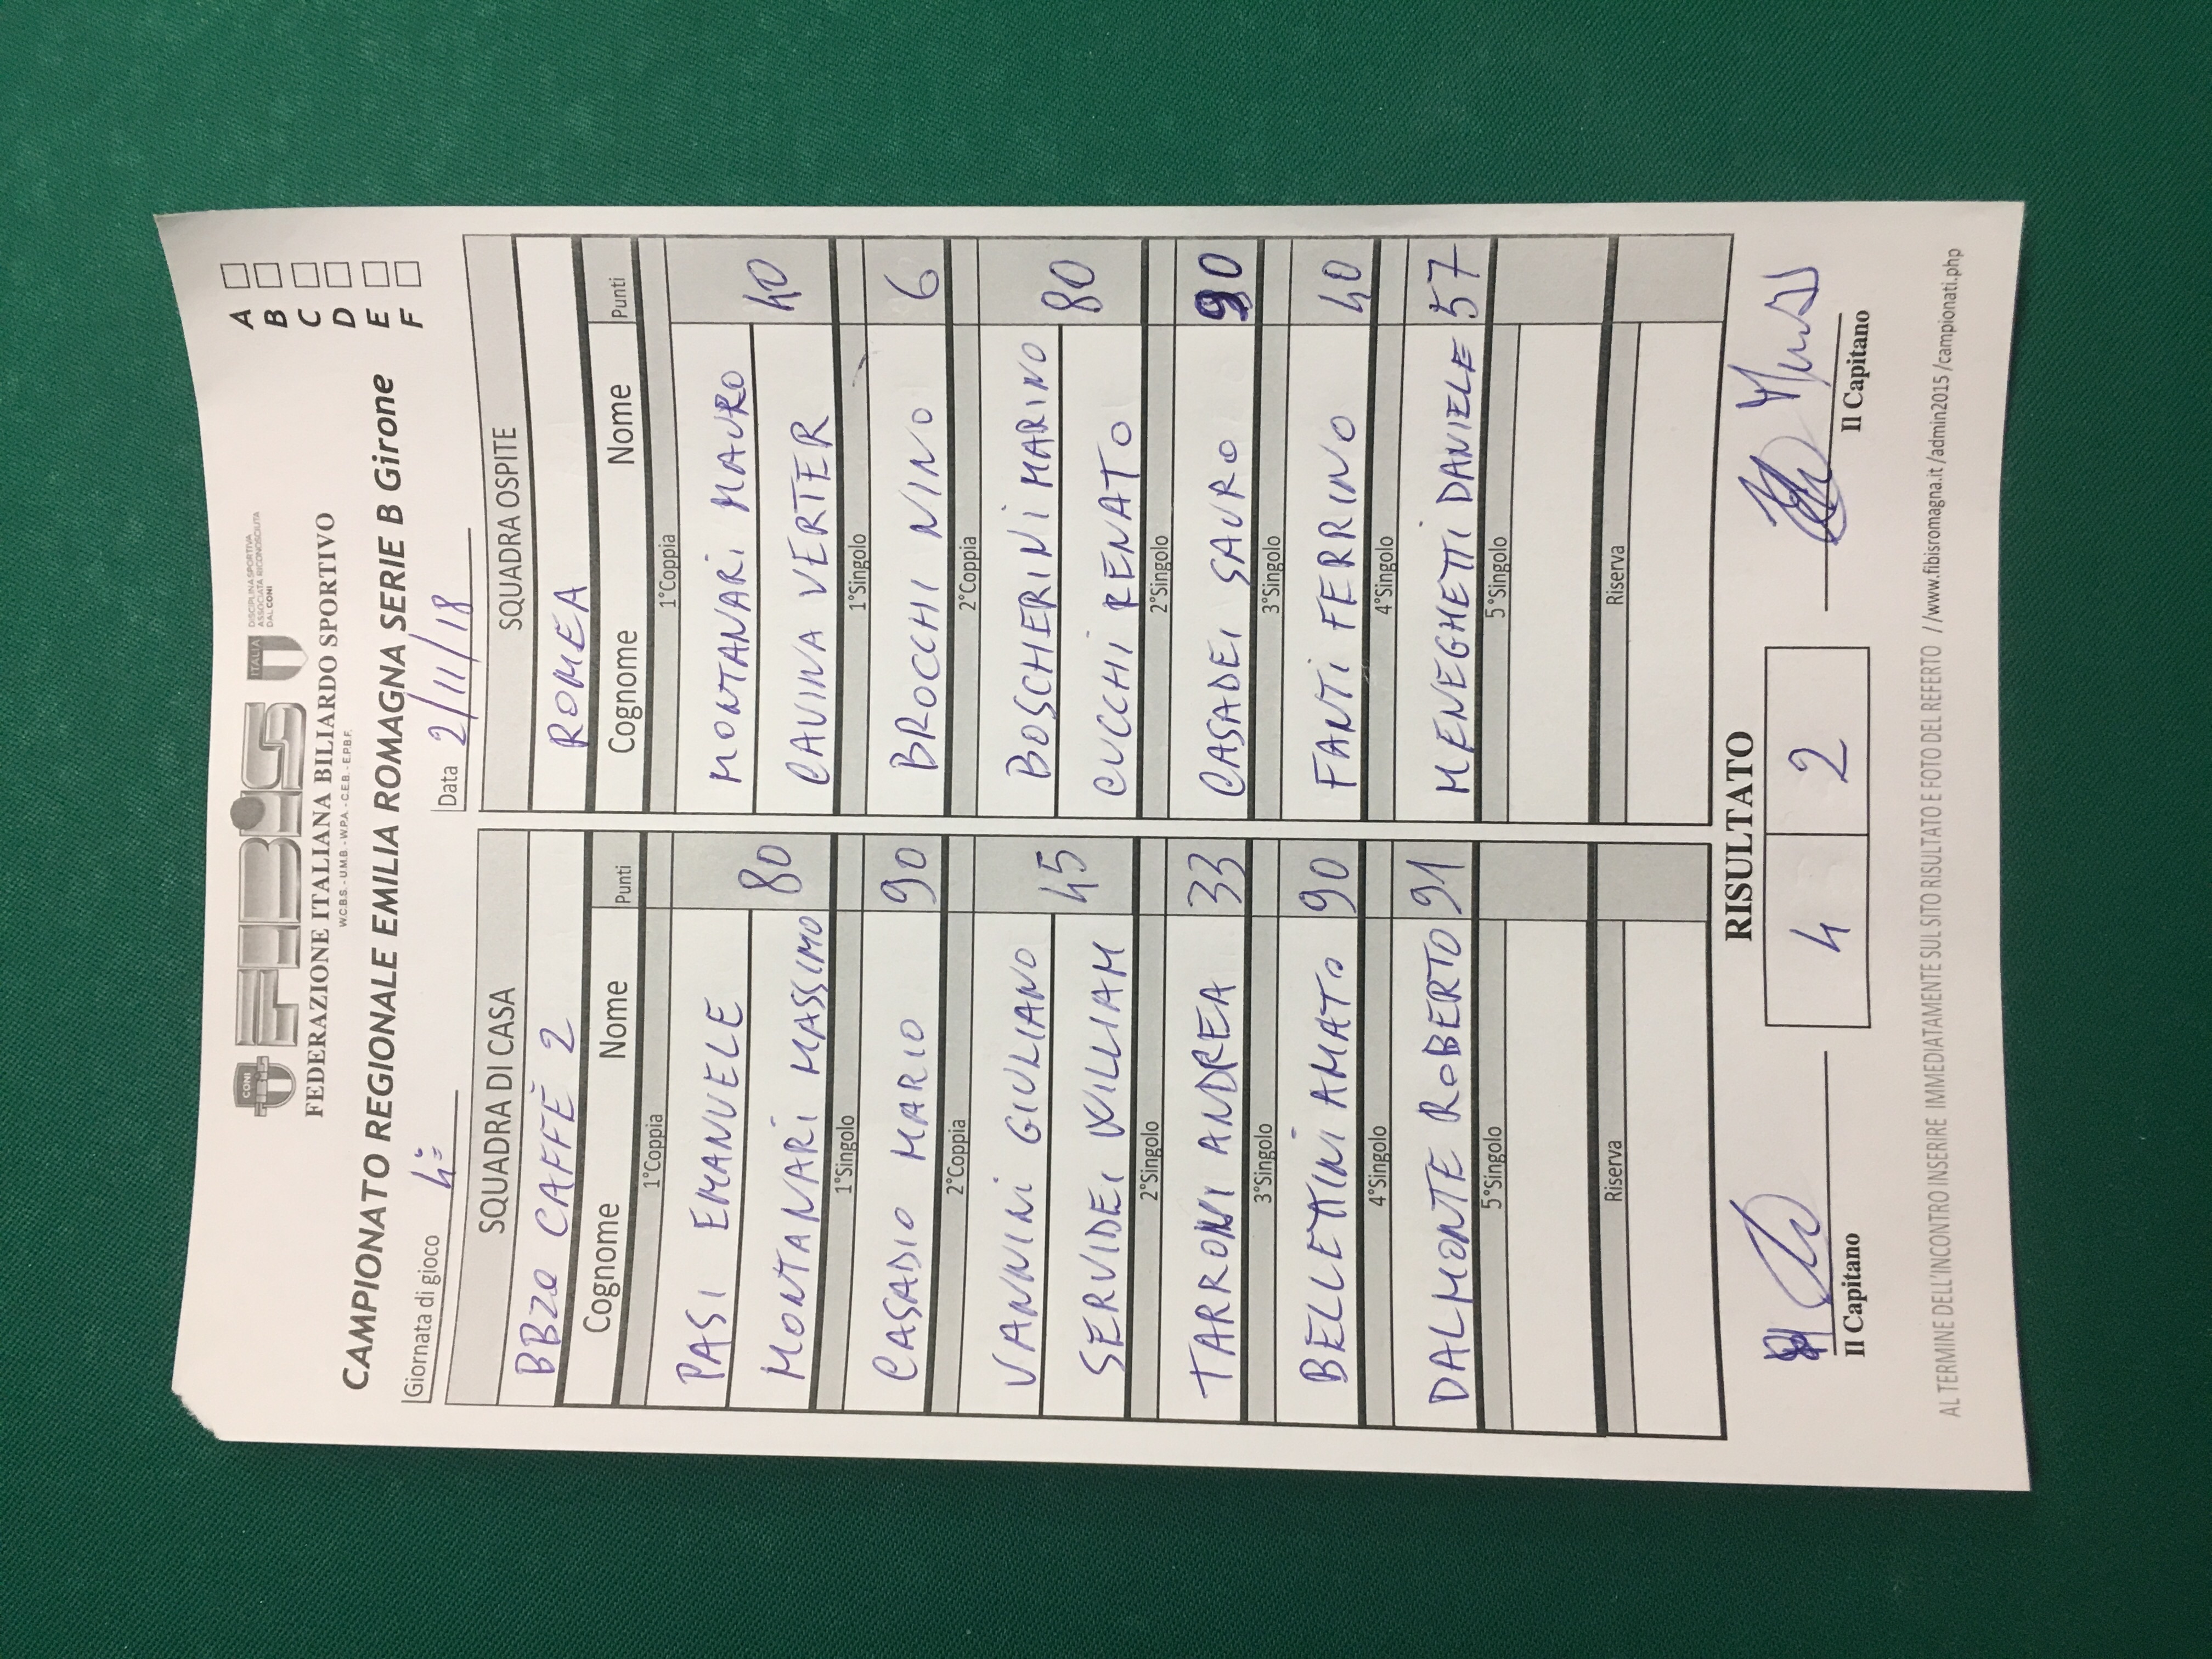 CONI
FIBiS
ITALIA
DISCIPLINA SPORTIVA
ASSOCIATA RICONOSCIUTA
DAL CONI
FEDERAZIONE ITALIANA BILIARDO SPORTIVO
W.C.B.S. - U.M.B. - W.P.A. - C.E.B. - E.P.B.F.
A
B
C
D
E
F
CAMPIONATO REGIONALE EMILIA ROMAGNA SERIE B Girone
Giornata di gioco 4° Data 2/11/18
SQUADRA DI CASA SQUADRA OSPITE
BBZO CAFFÈ 2 ROMEA
Cognome Nome Punti Cognome Nome Punti
1°Coppia 1°Coppia
PASI EMANUELE MONTANARI MAURO
MONTANARI MASSIMO 80 CAVINA VERTER 40
1°Singolo 1°Singolo
CASADIO MARIO 90 BROCCHI NINO 6
2°Coppia 2°Coppia
VANNINI GIULIANO BOSCHERINI MARINO
SERVIDEI WILLIAM 45 CUCCHI RENATO 80
2°Singolo 2°Singolo
TARRONI ANDREA 33 CASADEI SAURO 90
3°Singolo 3°Singolo
BELLETTINI AMATO 90 FANTI FERRINO 40
4°Singolo 4°Singolo
DALMONTE ROBERTO 91 MENEGHETTI DANIELE 57
5°Singolo 5°Singolo
Riserva Riserva
RISULTATO
4 2
Il Capitano Il Capitano
AL TERMINE DELL'INCONTRO INSERIRE IMMEDIATAMENTE SUL SITO RISULTATO E FOTO DEL REFERTO //www.fibisromagna.it /admin2015 /campionati.php